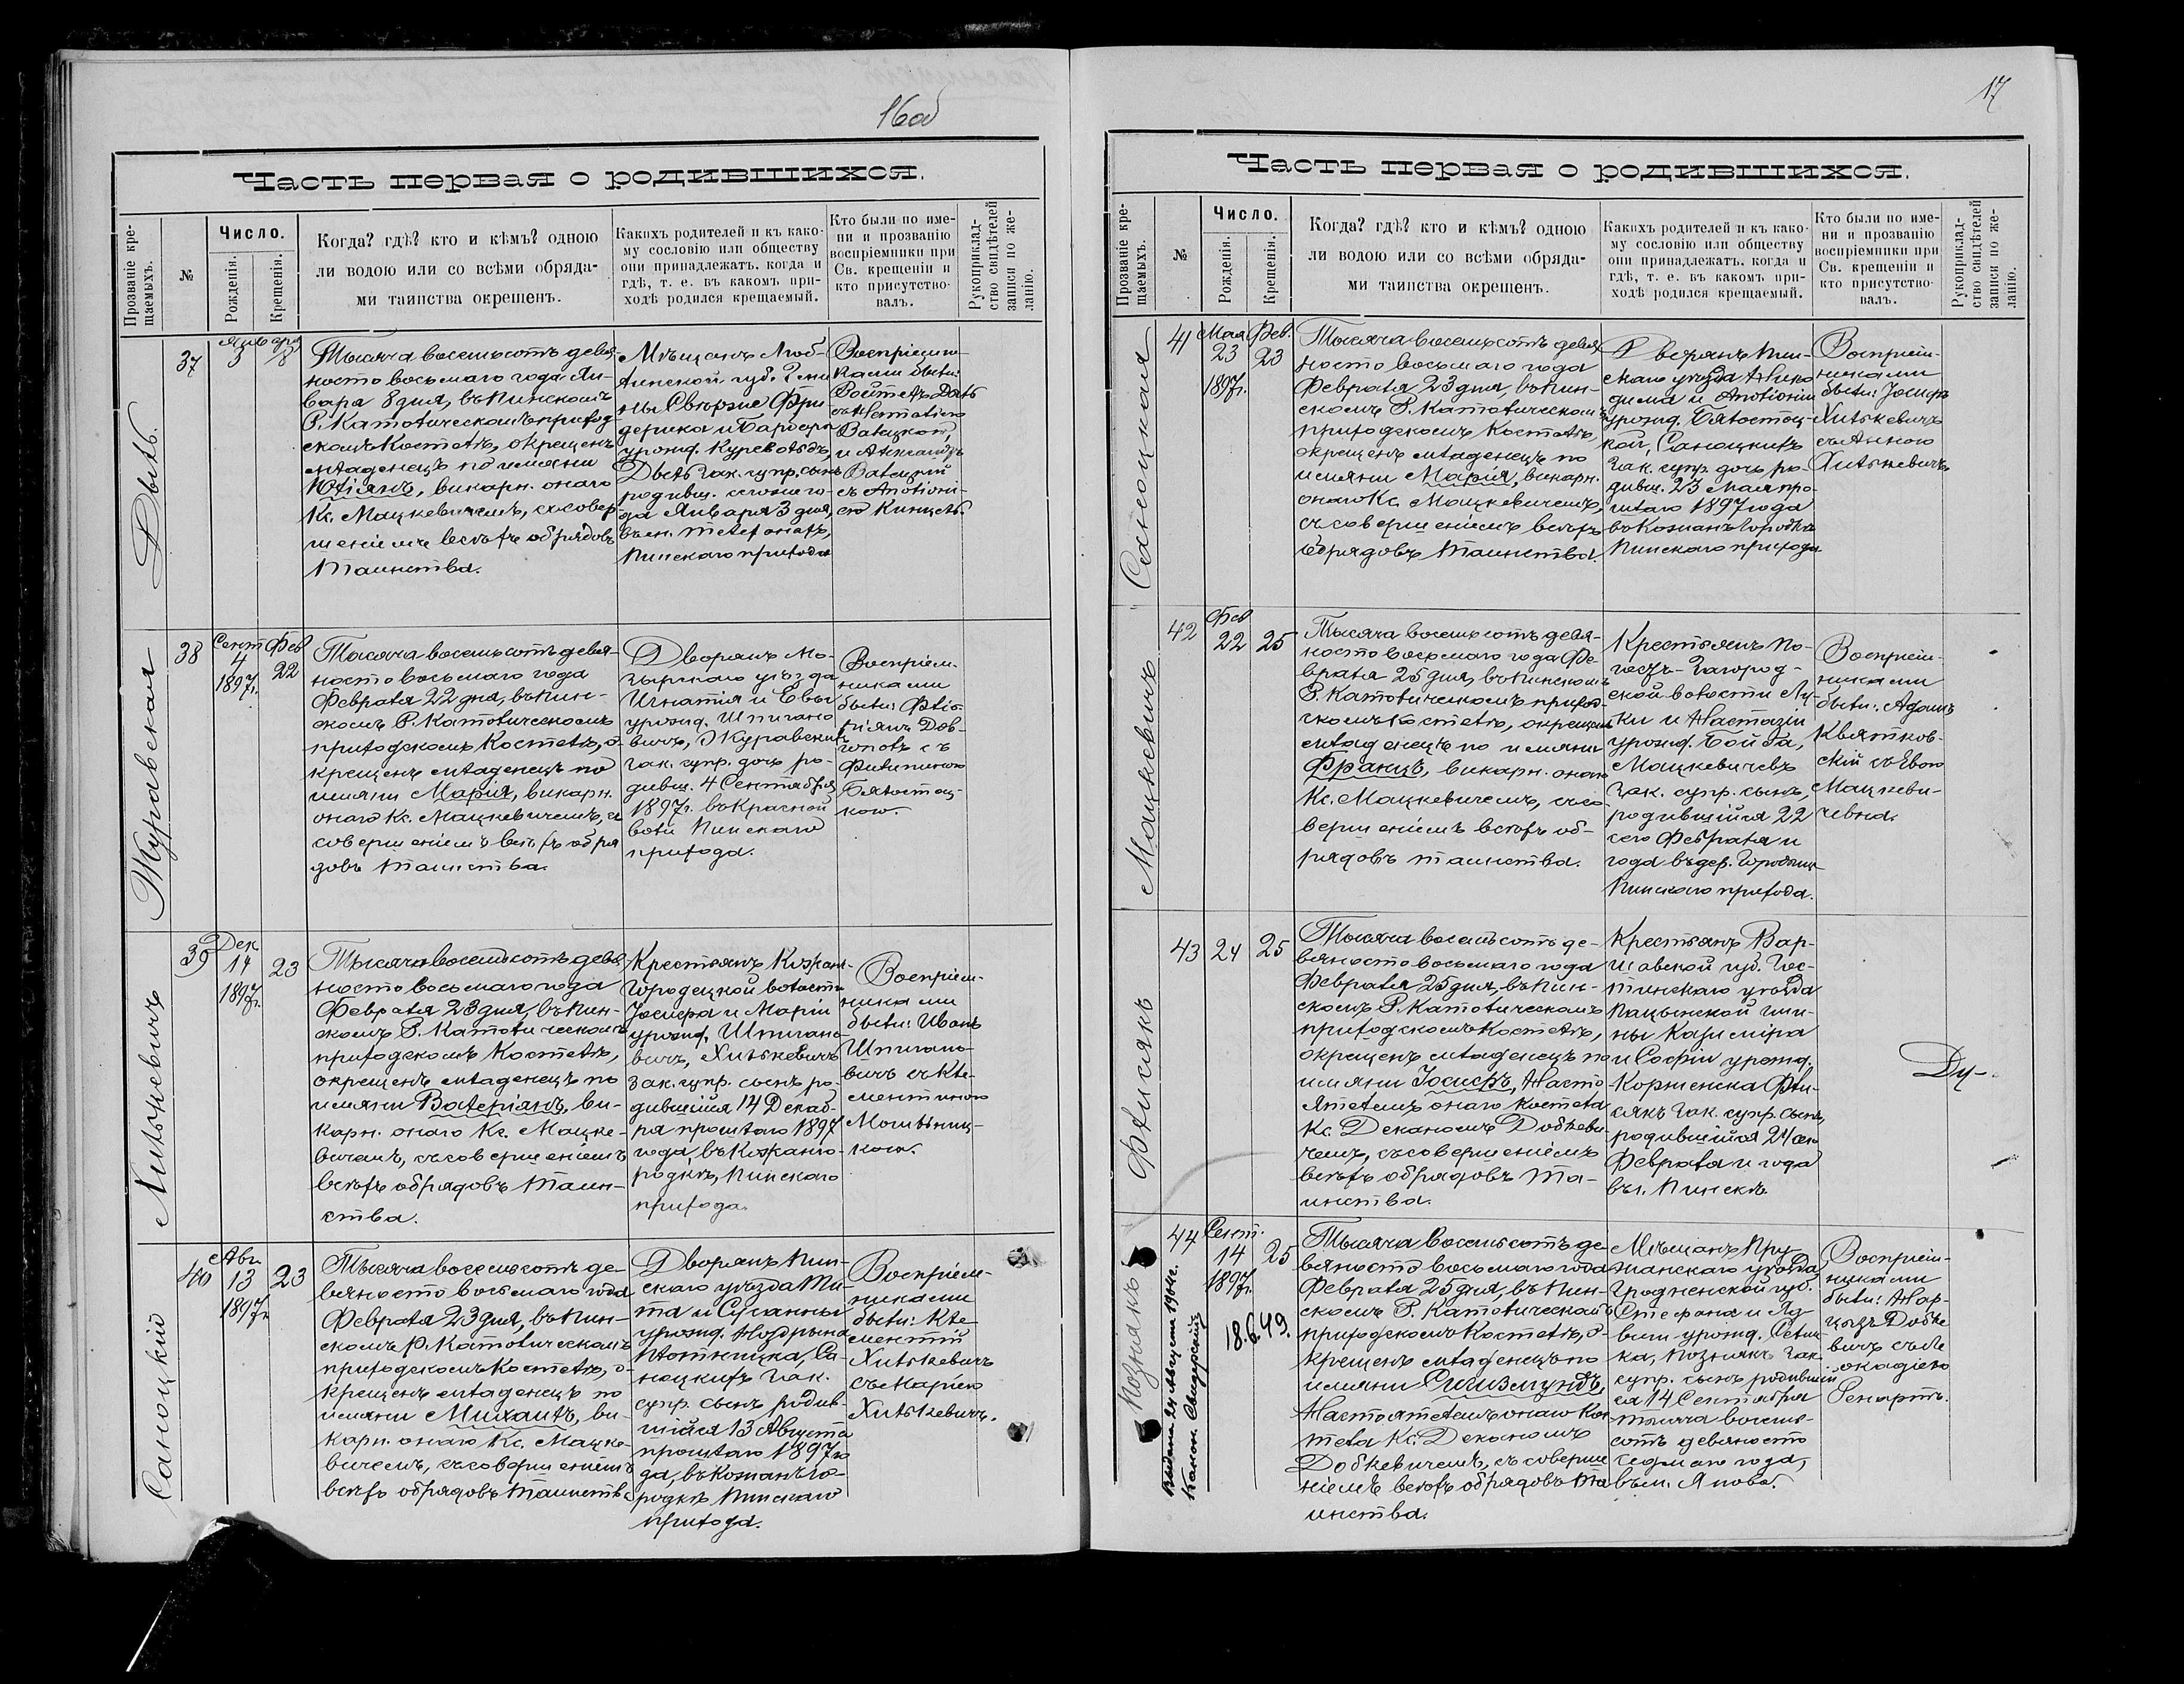 16об
Часть первая о родившихся.
Прозваніе кре-
щаемыхъ.
№
Число.
Рожденія.
Крещенія.
Когда? гдѣ? кто и кѣмъ? одною
ли водою или со всѣми обряда-
ми таинства окрещенъ.
Какихъ родителей и къ како-
му сословію или обществу
они принадлежатъ. когда и
гдѣ, т. е. въ какомъ при-
ходѣ родился крещаемый.
Кто были по име-
ни и прозванію
воспріемники при
Св. крещеніи и
кто присутство-
валъ.
Рукоприклад-
ство свидѣтелей
записи по же-
ланію.
37
Января
3
8
Тысяча восемьсотъ девя-
носто восьмаго года Ян-
варя 8 дня, въ Пинскомъ
Р. Католическомъ приход
скомъ Костелѣ, окрещенъ
младенецъ по имяни
викарн. онаго
Кс. Мацкевичемъ, съ совер
шеніемъ всѣхъ обрядовъ
Таинства.
Мѣщанъ Люб-
линской губ.
Фри-
дерика и
урожд.
зак. супр. сынъ
родивш. сего го-
да Января 3 дня,
Пинскаго прихода
Воспріемни-
ками были:
и Александръ
съ Антони-
ею
Журавская
38
Сент
4
1897г.
Фев
22
Тысяча восемьсотъ девя-
носто восьмаго года
Февраля 22 дня, въ Пин-
скомъ Р. Католическомъ
приходскомъ Костелѣ, о-
крещенъ младенецъ по
имяни Марія, викарн.
онаго Кс. Мацкевичемъ, съ
совершеніемъ всѣхъ обря
довъ Таинства.
Дворянъ Мо-
зырскаго уѣзда
Игнатія и Евы
урожд. Шпигано
вичъ, Журавскихъ
зак. супр. дочь ро-
дивш. 4 Сентября
1897г. въ Красной
воли Пинскаго
прихода.
Воспріем-
никами
были: Флю-
ріянъ Дов-
съ
Филипиною
Бялостоц-
кою.
Хилькевичъ
39
Дек
14
1897г.
23
Тысяча восемьсотъ девя
носто восьмаго года
Февраля 23 дня, въ Пин-
скомъ Р. Католическомъ
приходскомъ Костелѣ,
окрещенъ младенецъ по
имяни Валеріянъ, ви-
карн. онаго Кс. Мацке-
вичемъ, съ совершеніемъ
всѣхъ обрядовъ Таин-
ства.
Крестьянъ Кожан-
Городецкой волости
Іосифа и Маріи
урожд. Шпигано-
вичъ, Хилькевичъ
зак. супр. сынъ ро-
дившійся 14 Декаб-
ря прошлаго 1897
года, въ Кожанго-
родкѣ, Пинскаго
прихода.
Воспріем-
никами
были: Иванъ
Шпигано-
вичъ съ Кле-
ментиною
кою.
Саноцкій
40
Авг.
13
1897г.
23
Тысяча восемьсотъ де-
вяносто восьмаго года
Февраля 23 дня, въ Пин-
скомъ Р. Католическомъ
приходскомъ Костелѣ, о-
крещенъ младенецъ по
имяни Михаилъ, ви-
карн. онаго Кс. Мацке-
вичемъ, съ совершеніемъ
всѣхъ обрядовъ Таинства
Дворянъ Пин-
скаго уѣзда
и Сузанны
урожд.
Плотницка, Са-
ноцкихъ зак.
супр. сынъ родив-
шійся 13 Августа
прошлаго 1897 го
да, въ Кожанъ-го-
родкѣ Пинскаго
прихода.
Воспріем-
никами
были: Кле
ментій
Хилькевичъ
съ Маріею
Хилькевичъ.
17
Часть первая о родившихся.
Прозваніе кре-
щаемыхъ.
№
Число.
Рожденія.
Крещенія.
Когда? гдѣ? кто и кѣмъ? одною
ли водою или со всѣми обряда-
ми таинства окрещенъ.
Какихъ родителей и къ како-
му сословію или обществу
они принадлежатъ. когда и
гдѣ, т. е. въ какомъ при-
ходѣ родился крещаемый.
Кто были по име-
ни и прозванію
воспріемники при
Св. крещеніи и
кто присутство-
валъ.
Рукоприклад-
ство свидѣтелей
записи по же-
ланію.
Саноцкая
41
Мая
23
1897г.
Фев.
23
Тысяча восемьсотъ девя
носто восьмаго года
Февраля 23 дня, въ Пин-
скомъ Р. Католическомъ
приходскомъ Костелѣ,
окрещенъ младенецъ по
имяни Марія, викарн.
онаго Кс. Мацкевичемъ,
съ совершеніемъ всѣхъ
обрядовъ Таинства.
Дворянъ Пин-
скаго уѣзда Нико
дима и Антоніи
урожд. Бялостоц-
кой, Саноцкихъ
зак. супр. дочь ро-
дивш. 23 Мая про-
шлаго 1897 года
въ Кожанъ Городкѣ
Пинскаго прихода
Воспріем-
никами
были: Іосифъ
Хилькевичъ
съ Анною
Хилькевичъ
Мацкевичъ
42
Фев
22
25
Тысяча восемьсотъ девя-
носто восьмаго года Фе-
враля 25 дня, въ Пинскомъ
Р. Католическомъ приход-
скомъ Костелѣ, окрещенъ
младенецъ по имяни
Францъ, викарн. онаго
Кс. Мацкевичемъ, съ со-
вершеніемъ всѣхъ об-
рядовъ таинства.
Крестьянъ По-
гостъ-Загород-
ской волости Лу-
ки и Настазіи
урожд. Бойба,
Мацкевичевъ
зак. супр. сынъ,
родившійся 22
сего Февраля и
года въ дер.
Пинскаго прихода.
Воспріем-
никами
были: Адамъ
Квятков-
скій съ Евою
Мацкеви-
чевна.
Флисякъ
43
24
25
Тысяча восемьсотъ де-
вяносто восьмаго года
Февраля 25 дня, въ Пин-
скомъ Р. Католическомъ
приходскомъ Костелѣ,
окрещенъ младенецъ по
имяни Іосифъ, Насто
ятелемъ онаго костела
Кс. Деканомъ Добкеви-
чемъ, съ совершеніемъ
всѣхъ обрядовъ Та-
инства.
Крестьянъ Вар-
шавской губ. Гос-
тинскаго уѣзда
гми-
ны Казиміра
и Софіи урожд.
Фли-
сякъ зак. супр. сынъ,
родившійся 24 сего
Февраля и года
въ г. Пинскѣ
Ду-
Познякъ
Выдана 24 Августа 1904г.
Канон. Свидерскій
44
Сент.
14
1897г.
25
18.6.49.
Тысяча восемьсотъ де-
вяносто восьмаго года
Февраля 25 дня, въ Пин-
скомъ Р. Католическомъ
приходскомъ Костелѣ, о-
крещенъ младенецъ по
имяни Сигизмундъ,
Настоятелемъ онаго Кос
тела Кс. Деканомъ
Добкевичемъ, съ соверше
ніемъ всѣхъ обрядовъ Та
инства.
Мѣщанъ Пру-
жанскаго уѣзда,
Гродненской губ.
Стефана и Яд-
виги урожд.
ка, Познякъ зак.
супр. сынъ родивший
ся 14 Сентября
тысяча восемь-
сотъ девяносто
седьмаго года,
въ м. Янова.
Воспріем-
никами
были: Нар-
цызъ Добке
вичъ съ Ле
окадіею
Ренартъ.